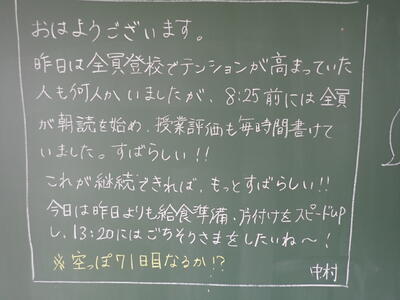 おはようございます。
昨日は全員登校でテンションが高まっていた
人も何人かいましたが、8:25前には全員
が朝読を始め、授業評価も毎時間書けて
いました。すばらしい!!
これが継続できれば、もっとすばらしい!!
今日は昨日よりも給食準備・片付けをスピードUP
し、13:20にはごちそうさまをしたいね〜!
※空っぽ71日目なるか!?
中村